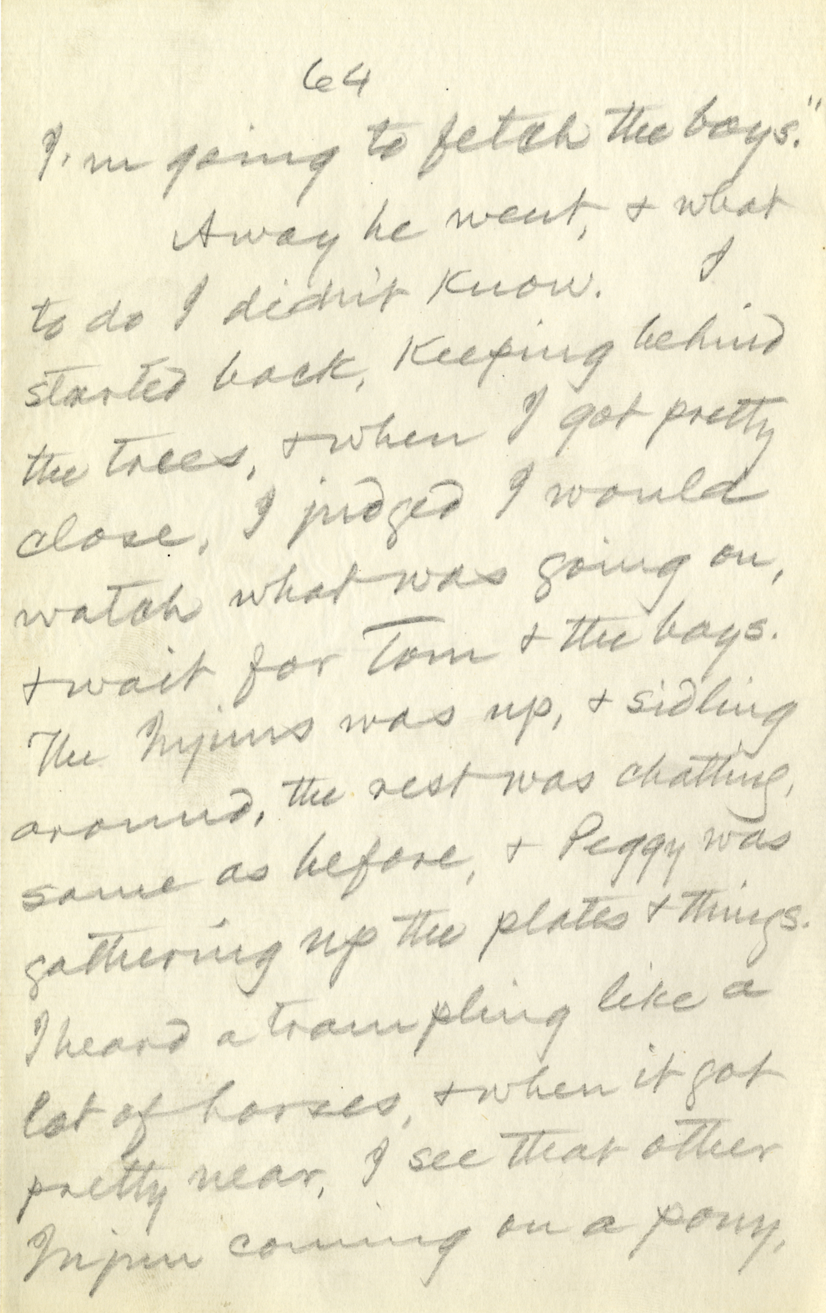 64
I'm going to fetch the boys."
Away he went, & what
to do I didn't know. I
started back, keeping behind
the trees, & when I got pretty
close, I judged I would
watch what was going on,
& wait for Tom & the boys.
The Injuns was up, & sidling
around, the rest was chatting,
same as before, & Peggy was
gathering up the plates & things.
I heard a trampling like a
lot of horses, & when it got
pretty near, I see that other
Injun coming on a pony,